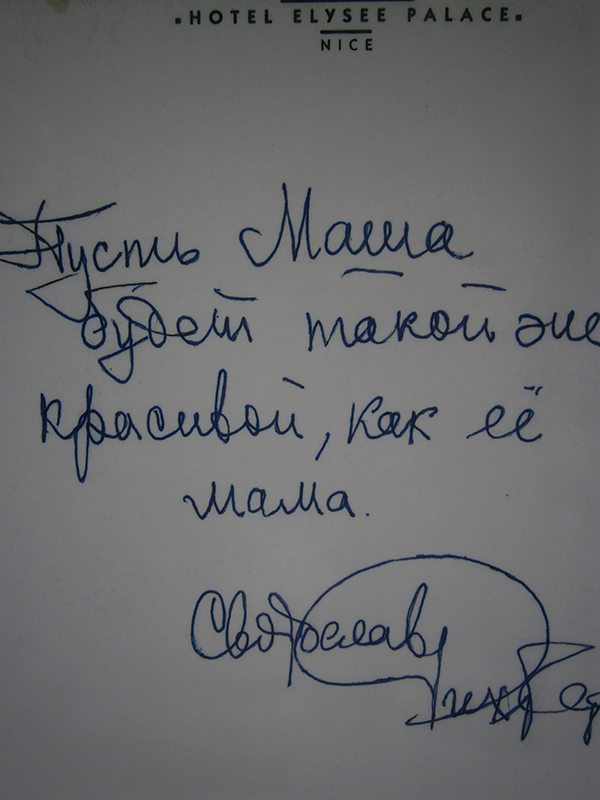 HOTEL ELYSEE PALACE
NICE
Пусть Маша
будет такой же
красивой, как её
мама.
Святослав
Рихтер